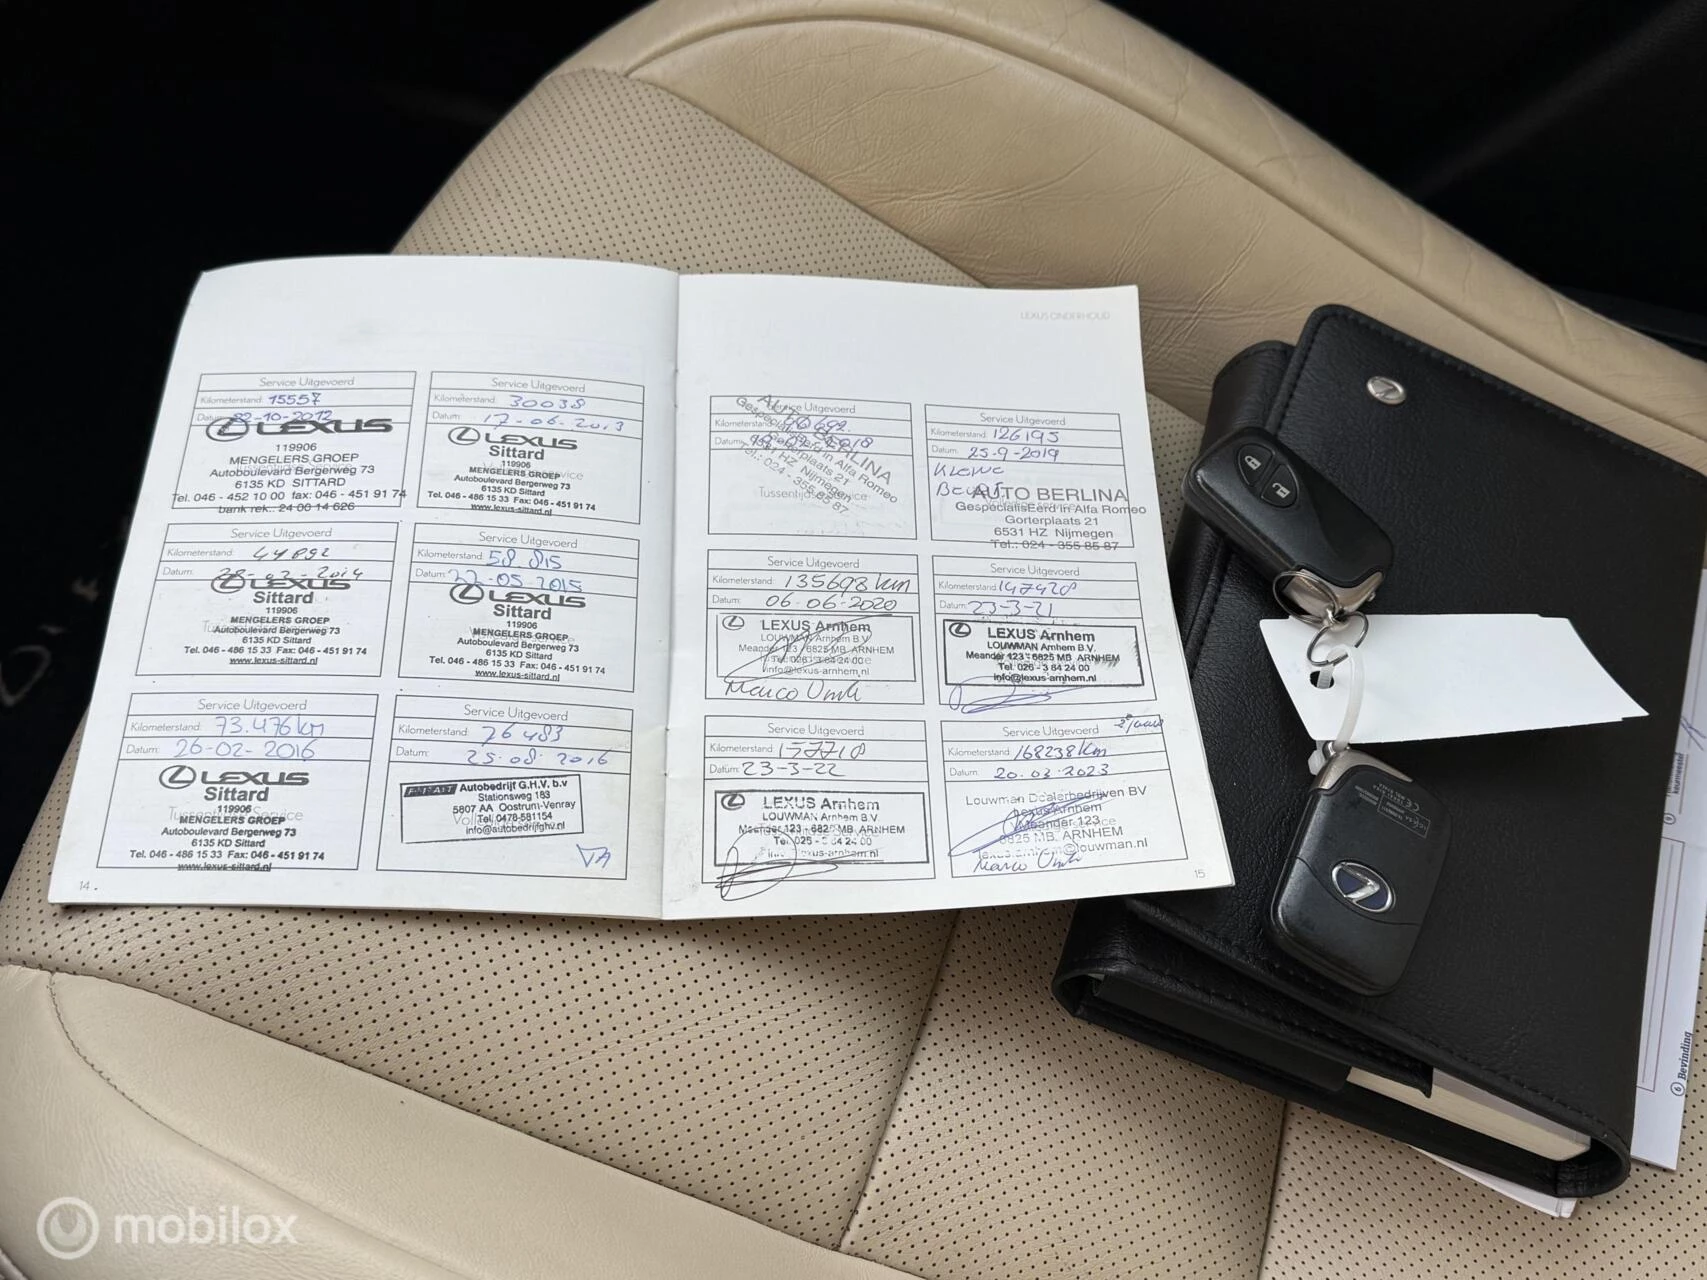 LEXUS ONDERHOUD
Service Uitgevoerd
Kilometerstand: 15557
Datum: -10-2012
LEXUS
119906
MENGELERS GROEP
Autoboulevard Bergerweg 73
6135 KD SITTARD
Tel. 046 - 452 10 00 fax: 046 - 451 91 74
bank rek.: 24 00 14 626
Service Uitgevoerd
Kilometerstand: 30038
Datum: 17-06-2013
LEXUS
Sittard
119906
MENGELERS GROEP
Autoboulevard Bergerweg 73
6135 KD Sittard
Tel. 046 - 486 15 33 Fax: 046 - 451 91 74
www.lexus-sittard.nl
Service Uitgevoerd
Kilometerstand: 44892
Datum: 2014
LEXUS
Sittard
119906
MENGELERS GROEP
Autoboulevard Bergerweg 73
6135 KD Sittard
Tel. 046 - 486 15 33 Fax: 046 - 451 91 74
www.lexus-sittard.nl
Service Uitgevoerd
Kilometerstand: 58.815
Datum: 22-05-2015
LEXUS
Sittard
119906
MENGELERS GROEP
Autoboulevard Bergerweg 73
6135 KD Sittard
Tel. 046 - 486 15 33 Fax: 046 - 451 91 74
www.lexus-sittard.nl
Service Uitgevoerd
Kilometerstand: 73.476km
Datum: 26-02-2016
LEXUS
Sittard
119906
MENGELERS GROEP
Autoboulevard Bergerweg 73
6135 KD Sittard
Tel. 046 - 486 15 33 Fax: 046 - 451 91 74
www.lexus-sittard.nl
Service Uitgevoerd
Kilometerstand: 76483
Datum: 25-08-2016
Autobedrijf G.H.V. b.v
Stationsweg 183
5807 AA Oostrum-Venray
Tel. 0478-581154
info@autobedrijfghv.nl
14
Service Uitgevoerd
Kilometerstand
Datum: 2018
AUTO BERLINA
Gespecialiseerd in Alfa Romeo
Gorterplaats 21
6531 HZ Nijmegen
Tel.: 024 - 355 85 87
Service Uitgevoerd
Kilometerstand: 126195
Datum: 25-9-2019
Kleine
Beurt
AUTO BERLINA
GespecialisEerd in Alfa Romeo
Gorterplaats 21
6531 HZ Nijmegen
Tel.: 024 - 355 85 87
Service Uitgevoerd
Kilometerstand: 135698 km
Datum: 06-06-2020
LEXUS Arnhem
LOUWMAN Arnhem B.V.
Meander 123 / 6825 MB ARNHEM
Tel. 026 - 3 84 24 00
info@lexus-arnhem.nl
Service Uitgevoerd
Kilometerstand: 147420
Datum: 23-3-21
LEXUS Arnhem
LOUWMAN Arnhem B.V.
Meander 123 - 6825 MB ARNHEM
Tel. 026 - 3 84 24 00
info@lexus-arnhem.nl
Service Uitgevoerd
Kilometerstand: 157710
Datum: 23-3-22
LEXUS Arnhem
LOUWMAN Arnhem B.V.
Meander 123 - 6825 MB ARNHEM
Tel. 026 - 3 84 24 00
info@lexus-arnhem.nl
Service Uitgevoerd
Kilometerstand: 168238km
Datum: 20.03.2023
Louwman Dealerbedrijven BV
Lexus Arnhem
Meander 123
6825 MB ARNHEM
lexus.arnhem@louwman.nl
15
6 Bevinding
mobilox